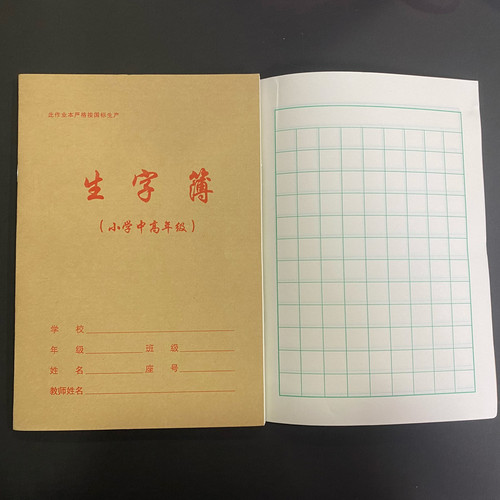 此作业本严格按国标生产
生字薄
(小学中高年级)
学 校
年 级 班 级
姓 名 座 号
教师姓名